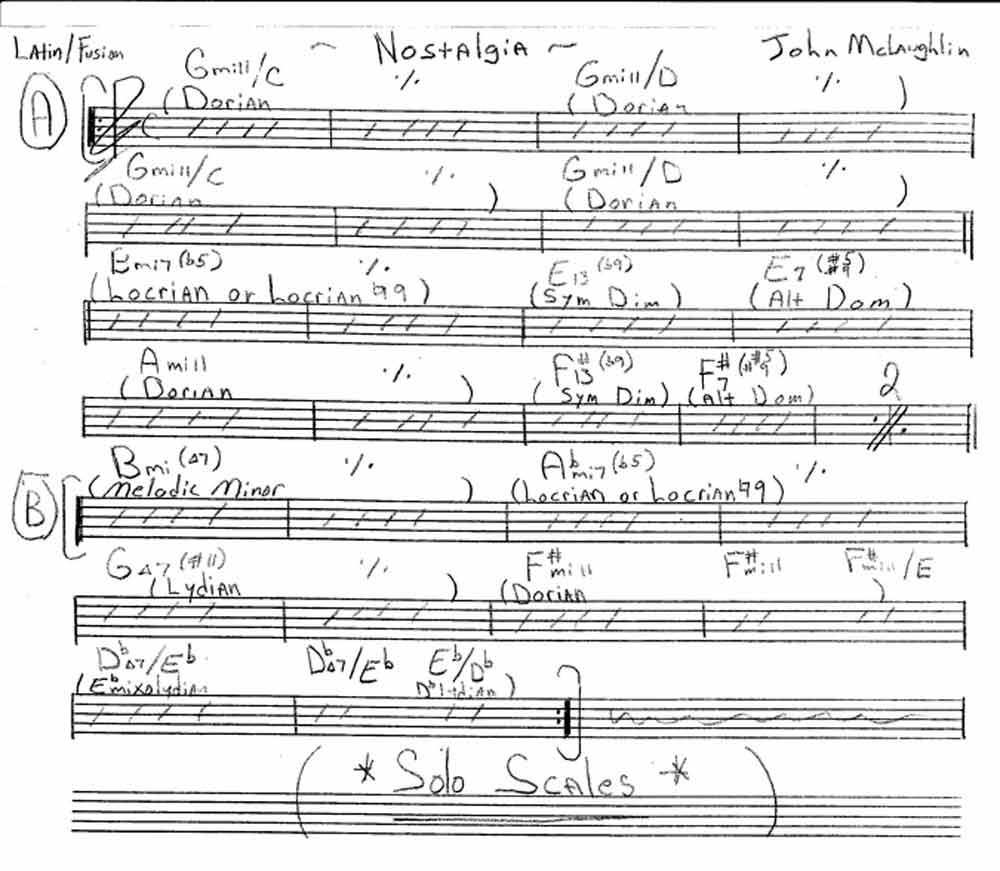 Latin/Fusion ~ Nostalgia ~ John McLaughlin
Gmi11/C ٪ Gmi11/D ٪
A (Dorian (Dorian )
C
Gmi11/C ٪ Gmi11/D ٪
(Dorian ) (Dorian )
Bmi7(b5) ٪ E13(b9) E7(#5#9)
(Locrian or Locrian ♮9) (Sym Dim) (Alt Dom)
Ami11 ٪ F#13(b9) F#7(#5#9) 2
(Dorian ) (Sym Dim) (Alt Dom)
Bmi(Δ7) ٪ Abmi7(b5) ٪
B (Melodic Minor ) (Locrian or Locrian ♮9)
GΔ7(#11) ٪ F#mi11 F#mi11 F#mi11/E
(Lydian ) (Dorian )
DbΔ7/Eb DbΔ7/Eb Eb/Db
(Eb mixolydian Db Lydian)
(* Solo Scales *)